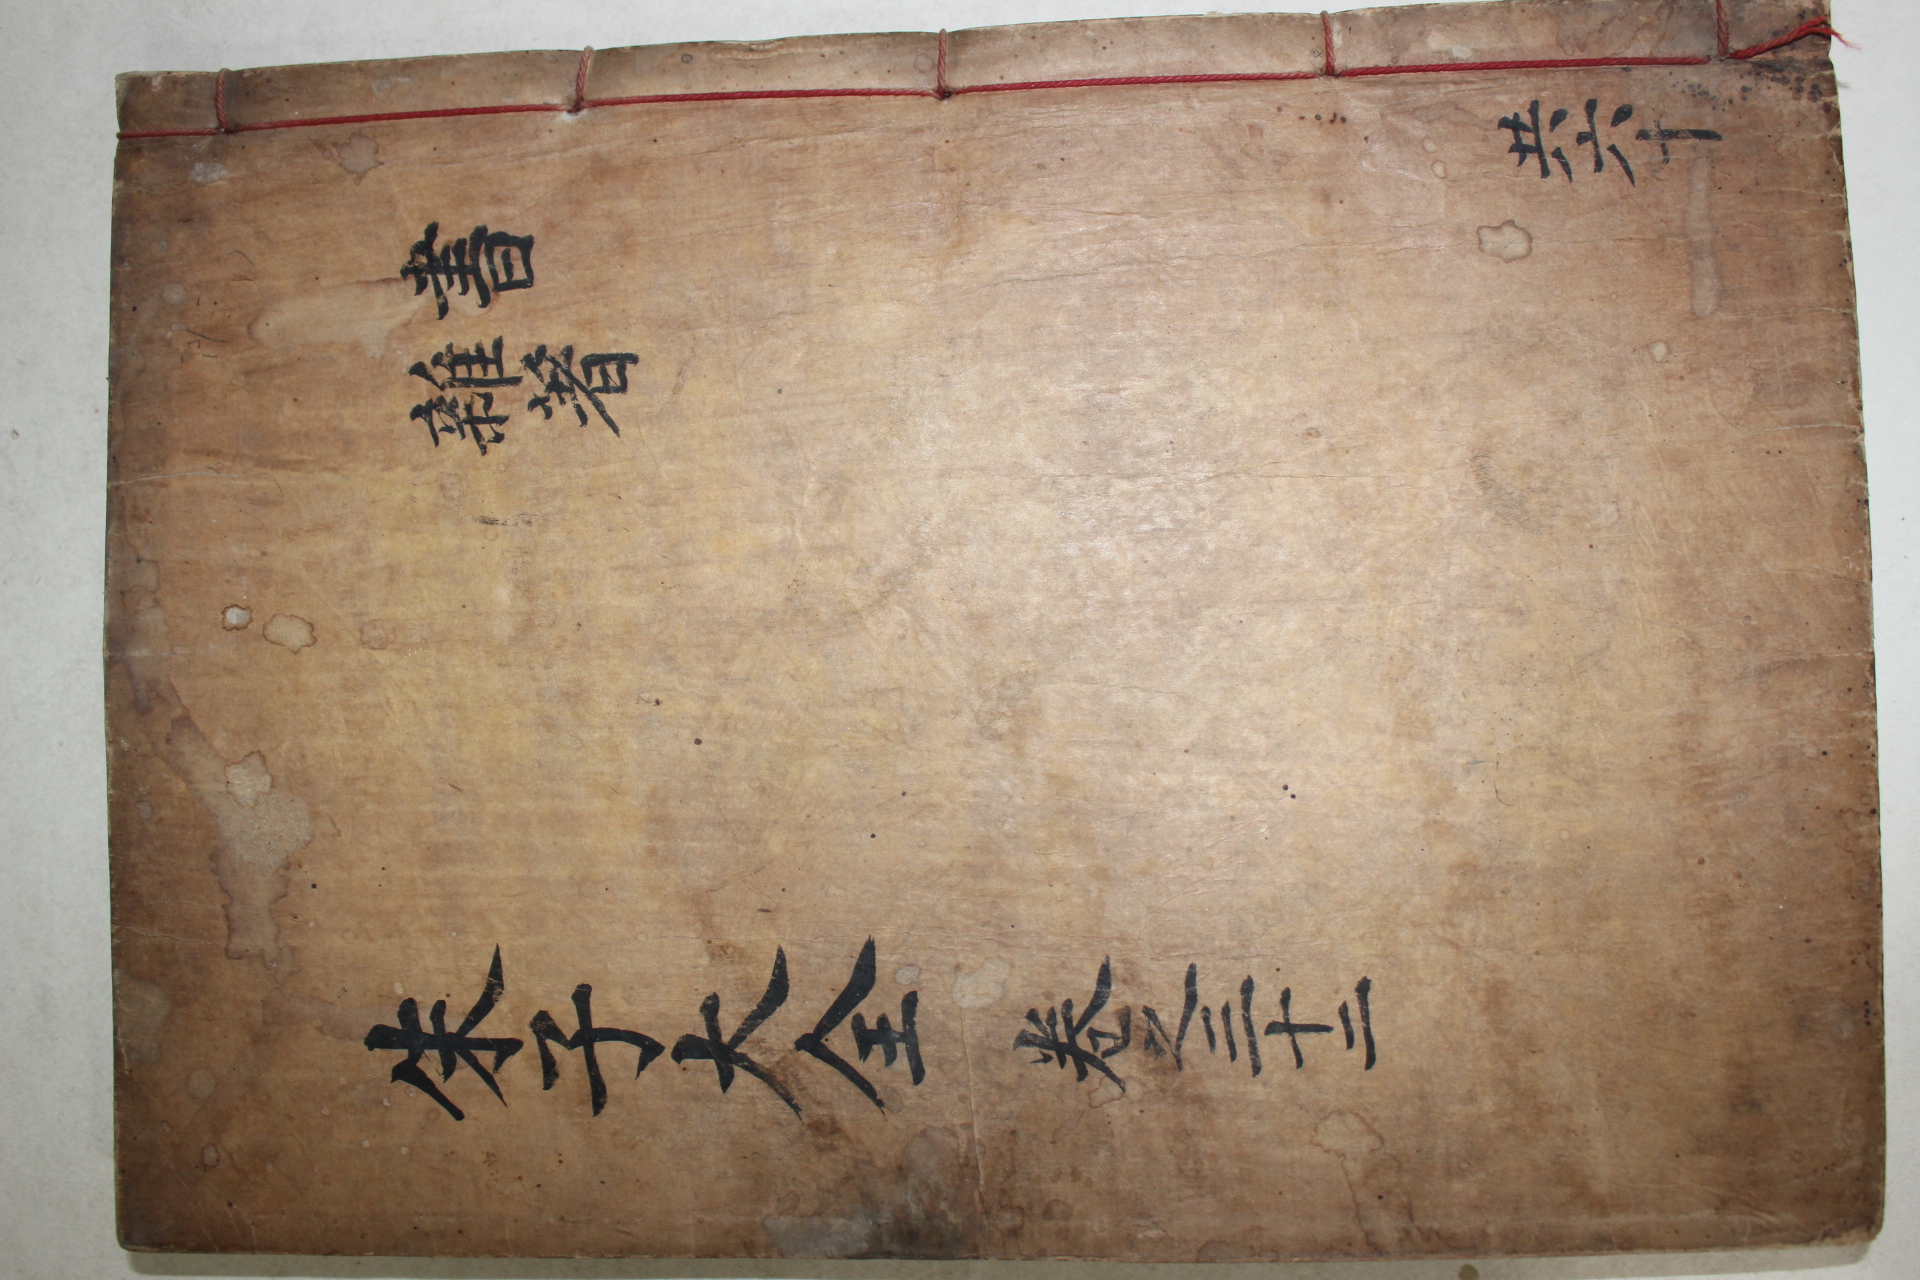 朱子大全 卷之三十二
書
雜著
共六十